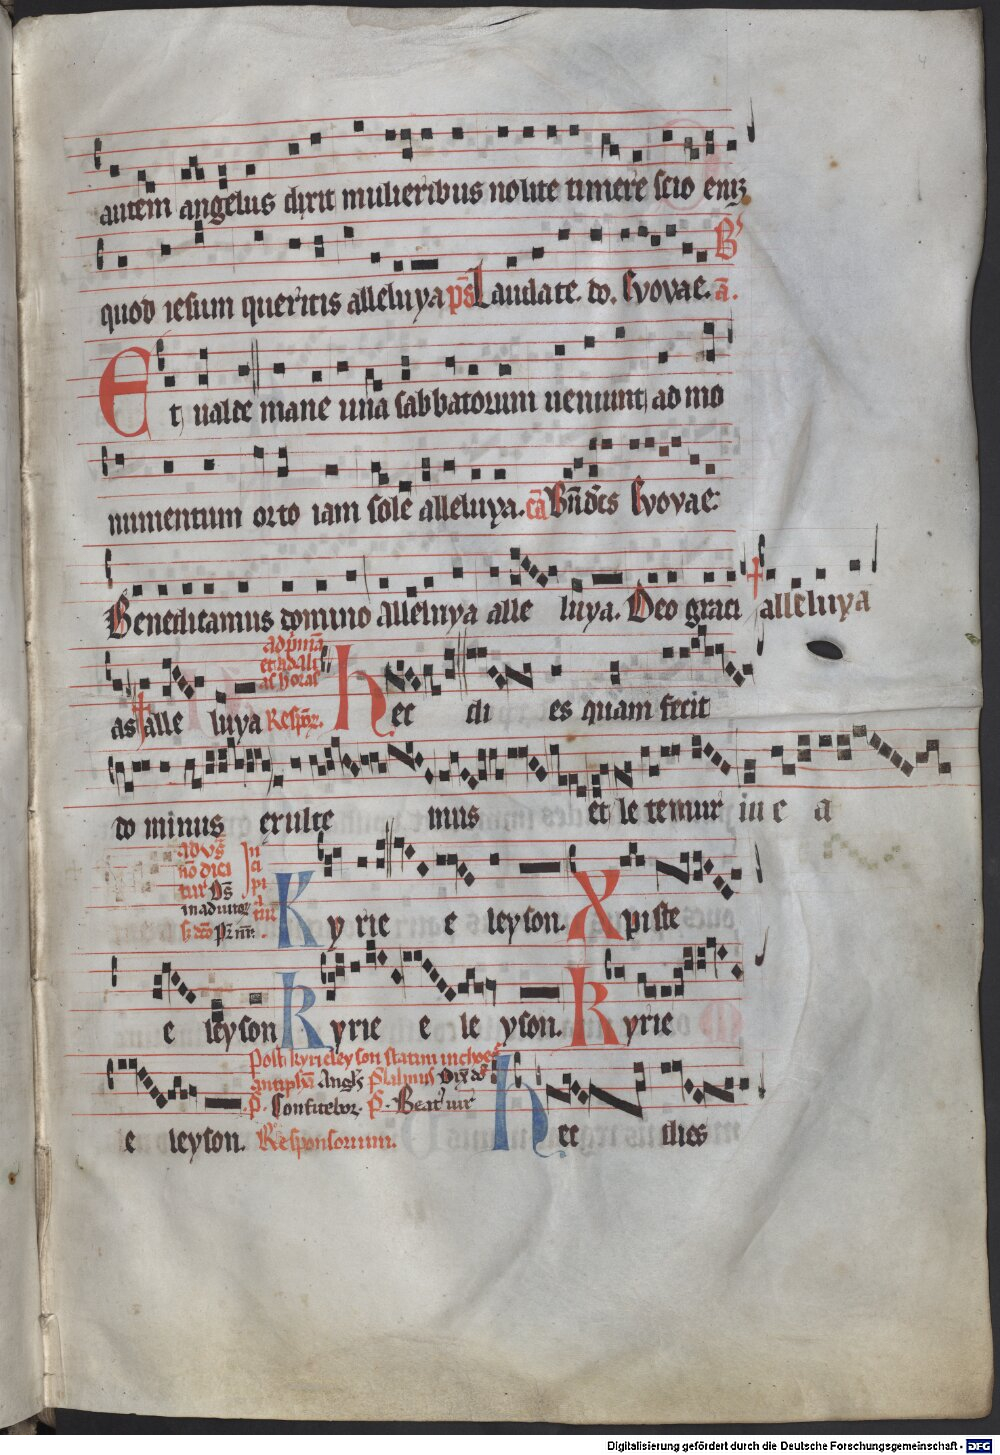 autem angelus dixit mulieribus nolite timere scio eniꝫ
quod iesum queritis alleluya p̄s Laudate. do. Evovae. ā.
Et valde mane una sabbatorum veniunt ad mo
numentum orto iam sole alleluya. Evovae
Benedicamus domino Alleluya alle luya. Deo graci alleluya
as † alle luya Respōꝝ. hec di es quam fecit
do minus exulte mus et le temur in e a
Ky rie e leyson. Xpiste
e leyson Kyrie e le yson. Kyrie
post kyrieleyson statim inchoet
e leyson. Responsorium. hec dies
Digitalisierung gefördert durch die Deutsche Forschungsgemeinschaft - DFG